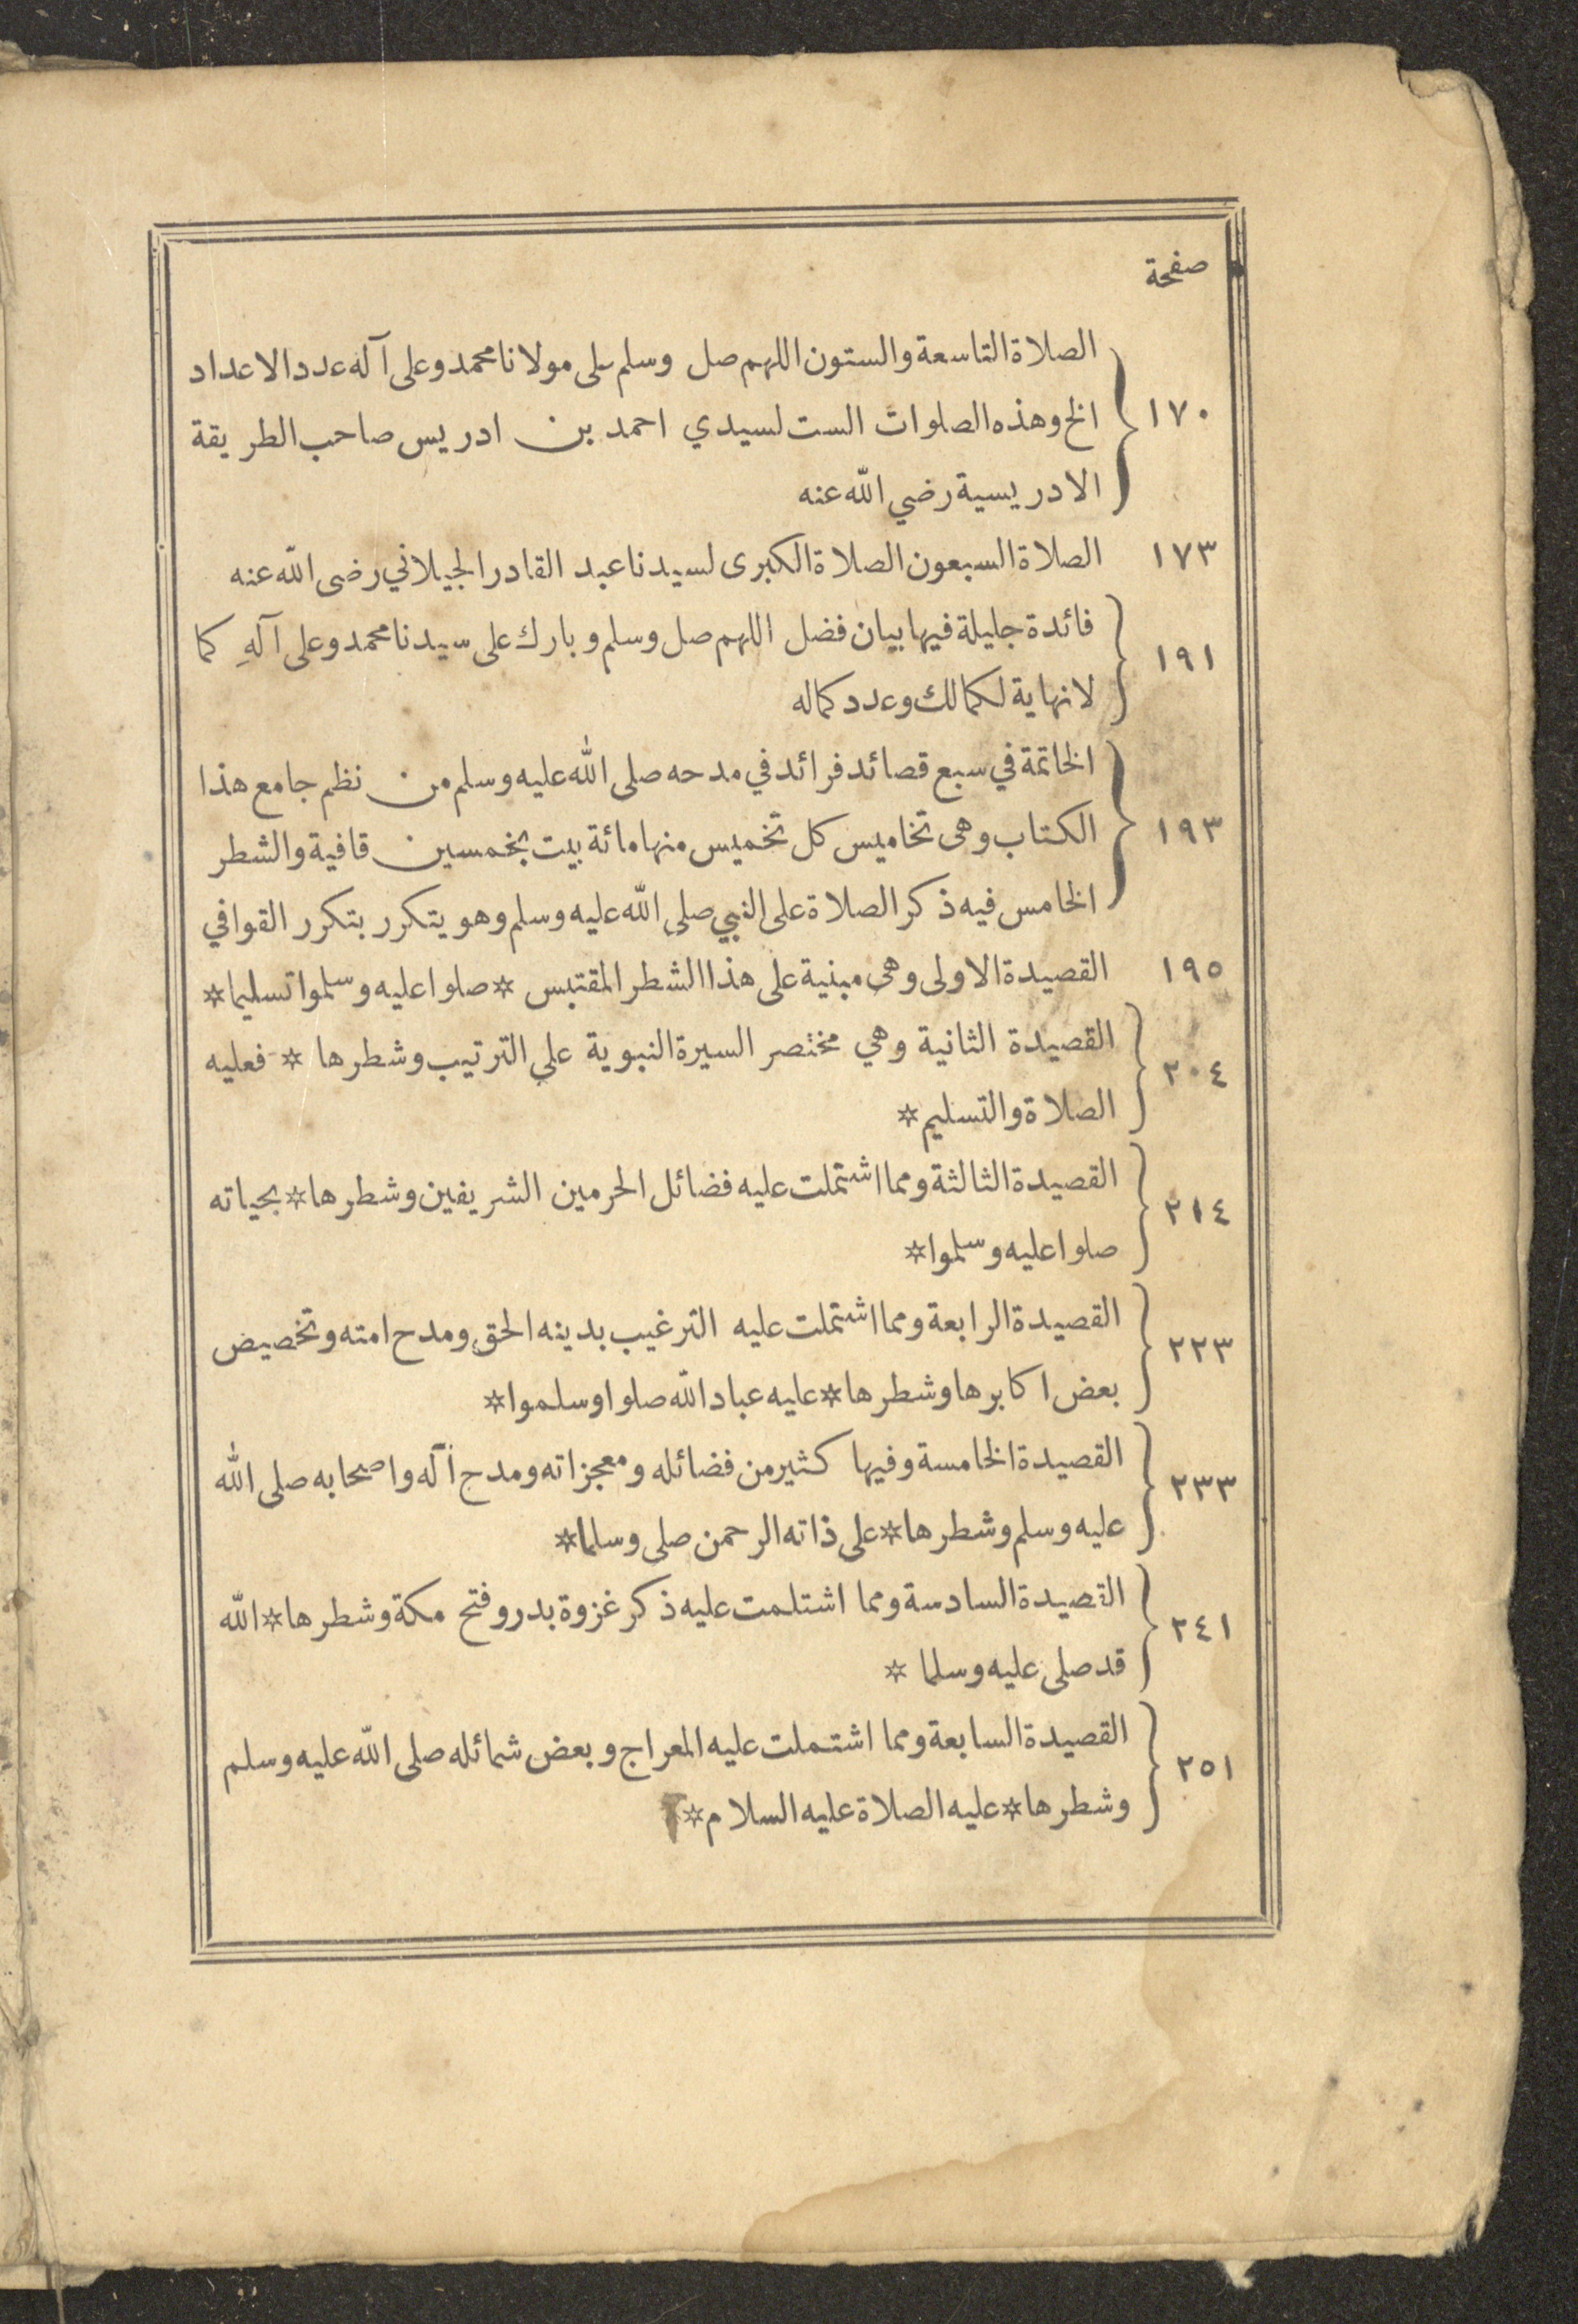 صفحة
الصلاة التاسعة والستون اللهم صل وسلم على مولانا محمد وعلى آله عدد الاعداد
١٧٠ الخ وهذه الصلوات الست لسيدي احمد بن ادريس صاحب الطريقة
الادريسية رضي الله عنه
١٧٣ الصلاة السبعون الصلاة الكبرى لسيدنا عبد القادر الجيلاني رضى الله عنه
١٩١ فائدة جليلة فيها بيان فضل اللهم صل وسلم وبارك على سيدنا محمد وعلى آلهِ كما
لانهاية لكمالك وعدد كماله
الخاتمة في سبع قصائد فرائد في مدحه صلى الله عليه وسلم من نظم جامع هذا
١٩٣ الكتاب وهى تخاميس كل تخميس منها مائة بيت بخمسين قافية والشطر
الخامس فيه ذكر الصلاة على النبي صلى الله عليه وسلم وهو يتكرر بتكرر القوافي
١٩٥ القصيدة الاولى وهى مبنية على هذا الشطر المقتبس * صلوا عليه وسلموا تسليما *
٢٠٤ القصيدة الثانية وهي مختصر السيرة النبوية على الترتيب وشطرها * فعليه
الصلاة والتسليم *
٢١٤ القصيدة الثالثة ومما اشتملت عليه فضائل الحرمين الشريفين وشطرها * بحياته
صلوا عليه وسلموا *
٢٢٣ القصيدة الرابعة ومما اشتملت عليه الترغيب بدينه الحق ومدح امته وتخصيص
بعض اكابرها وشطرها * عليه عباد الله صلوا وسلموا *
٢٣٣ القصيدة الخامسة وفيها كثير من فضائله ومعجزاته ومدح آله واصحابه صلى الله
عليه وسلم وشطرها * على ذاته الرحمن صلى وسلما *
٢٤١ القصيدة السادسة ومما اشتلمت عليه ذكر غزوة بدر وفتح مكة وشطرها * الله
قد صلى عليه وسلما *
٢٥١ القصيدة السابعة ومما اشتملت عليه المعراج وبعض شمائله صلى الله عليه وسلم
وشطرها * عليه الصلاة عليه السلام *